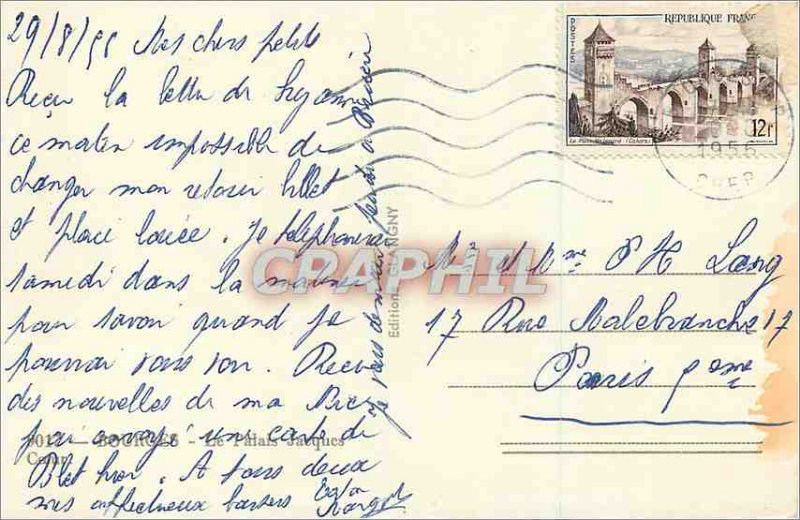 29/8/55 Mes chers petits
Reçu la lettre de Suzanne
ce matin impossible de
changer mon retour billet
et place louée. Je téléphonerai
samedi dans la matinée
pour savoir quand je
pourrai vous voir. Reçu
des nouvelles de ma
envoyé une carte de
Blet hier. A tous deux
mes affectueux baisers
Je vais demain jeudi à
9012 - BOURGES - Le Palais Jacques
Cœur
Edition GLANGNY
CRAPHIL
REPUBLIQUE FRANC
POSTES
12f
Le Pont Valentré (Cahors)
1955
CHER
Mr et Mme P H Lang
17 Rue Malebranche 17
Paris 5eme